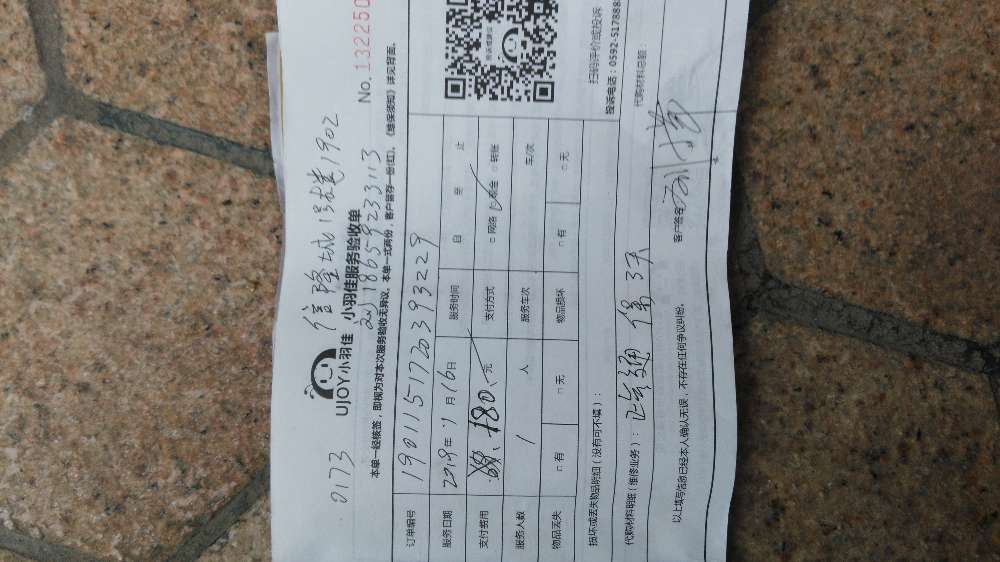 0173 信隆城13楼1902
UJOY小羽佳 小羽佳服务验收单
刘18659233113
No. 132250
本单一经核签，即视为对本次服务验收无异议。本单一式两份，客户留存一份(红)。《维保须知》详见背面。
订单编号 190115172039329
服务日期 2019年1月16日 服务时间 自 至 止
支付费用 180、元 支付方式 □网络 ☑现金 □转账
服务人数 1 人 服务车次 车/次
物品丢失 □有 □无 物品损坏 □有 □无
扫码评价或投诉
投诉电话：0592-5178888
损坏或丢失物品明细（没有可不填）：
代购材料明细（维修业务）： 3天
代购材料总额：
以上填写信息已经本人确认无误，不存在任何争议纠纷。
客户签名